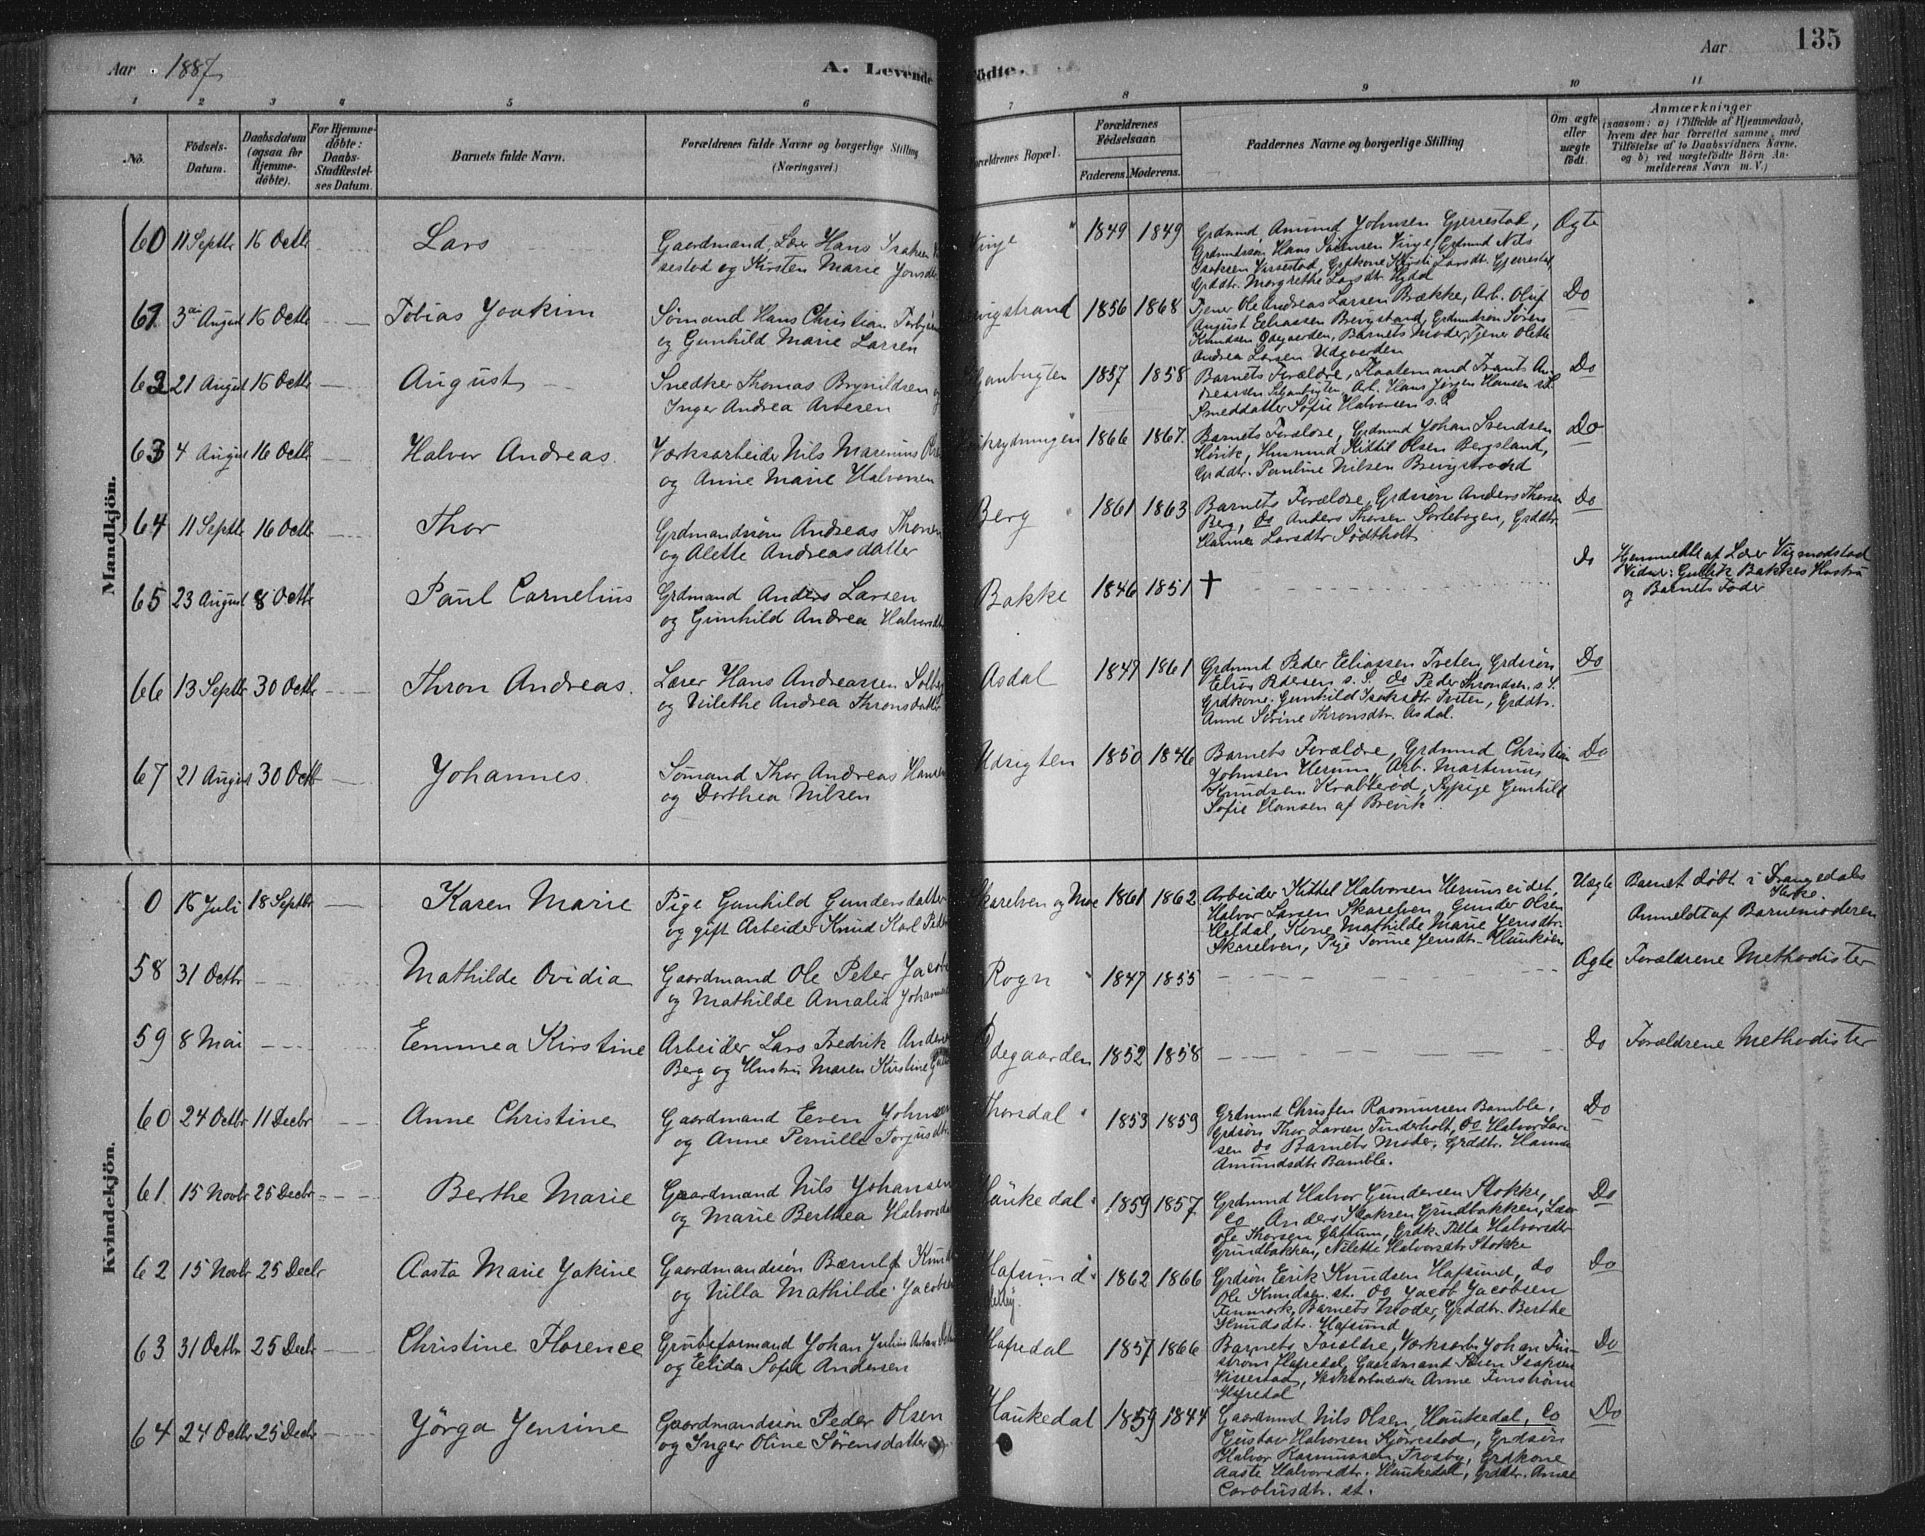 Aar 1887
A. Levende
Födte.
Aar
135
1 2 3 4 5 6 7 8 9 10 11
No.
Födsels-Datum.
Daabsdatum (ogsaa for Hjemme-döbte).
For Hjemme-döbte: Daabs-Stadfæstel-ses Datum.
Barnets fulde Navn.
Forældrenes fulde Navne og borgerlige Stilling
(Næringsvei.)
Forældrenes Bopæl.
Forældrenes Födselsaar.
Faderens. Moderens.
Faddernes Navne og borgerlige Stilling
Om ægte eller uægte födt.
Anmærkninger
(saasom: a) i Tilfælde af Hjemmedaab,
hvem der har forrettet samme, med
Tilföielse af to Daabsvidners Navne,
og b) ved uægtefödte Börn An-
melderens Navn m. V.)
Mandkjön.
60 11 Septbr 16 Octbr Lars
Gaardmand, Lærer Hans Isaksen
sestad og Kirsten Marie
Vinje 1849 1849
Grdmnd Amund Johnsen Gjerrestad,
Grdmndssøn Hans Vinje, Grdmnd Nils
Isaksen Vissestad, Grdkone Kirsti Larsdt. Gjerrestad,
Grddtr. Margrethe Larsdtr
Ægte
61 3die August 16 Octbr Tobias Joakim
Sømand Hans Christian
og Gunhild Marie Larsen
1856 1868
Tjener Ole Andreas Larsen Brække, Arb. Oluf
August Eliassen Brevigstrand, Grdmndssøn Søren
Knudsen Ødegaarden, Barnets Moder, Tjener Olette
Andrea Larsen Udgaarden
Do
62 21 August 16 Octbr August
Snedker Thomas Brynildsen og
Inger Andrea
1857 1858
Barnets Forældre,
Arb. Hans Jørgen Hansen st.
Smeddatter Sofie Halvorsen s. S.
Do
63 4 August 16 Octbr Halvor Andreas
Værksarbeider Nils Marenius
og Anne Marie Halvorsen
1866 1867.
Barnets Forældre, Grdmnd Johan Svendsen
Høvik, Husmnd Kittil Olsen Bergsland,
Grddtr. Pauline Nilsen Brevigstrand
Do
64 11 Septbr 16 Octbr Thor
Grdmandssøn Andreas Thorsen
og Alette Andreasdatter
Berg 1861 1863
Barnets Forældre, Grdssøn Anders Thorsen
Berg, do Anders Thorsen Sortebogen, Grddtr.
Hanna Larsdtr Sødtholt
Do
65 23 August 8 Octbr Paul Cornelius
Grdmand Anders Larsen
og Gunhild Andrea Halvorsdtr
Bakke 1846 1851 †
Do
Hjemmedbt. af Lærer Vigmodstad
Vidner: Gullik Bakkes Hustru
og Barnets Fader
66 13 Septbr 30 Octbr Thron Andreas.
Lærer Hans Andreassen
og Nilethe Andrea Thronsdatter
Asdal 1847 1861
Grdmnd Peder Eliassen Tveten, Grdssøn
Elias Pedersen s. S. do Peder Throndsen s. S.
Grdkone: Gunhild Isaksdtr Tveten, Grddtr.
Anne Sørine Thronsdtr. Asdal.
Do
67 21 August 30 Octbr Johannes
Sømand Thor Andreas Hansen
og Dorthea Nilsen
Udsigten 1850 1846
Barnets Forældre, Grdmnd Christian
Johnsen Herum, Arb. Martinus
Knudsen Krabberød, Sypige Gunhild
Sofie Hansen af Brevik.
Do
Kvindekjön.
0 16 Juli 18 Septbr Karen Marie
Pige Gunhild Gundersdatter
og gift Arbeider Knud Karl
Skarelven og Moe 1861 1862
Arbeider Kittel Halvorsen Herumseidet,
Halvor Larsen Skarelven, Gunder Olsen
Heldal, Kone Mathilde Marie Jensdtr.
Skarelven, Pige Jensdtr.
Uægte
Barnet døbt i Drangedals Kirke.
Anmeldt af Barnemoderen
58 31 Octbr Mathilde Ovidia
Gaardmand Ole Peter
og Mathilde Amalia
Rogn 1847 1855
Ægte
Forældrene Methodister
59 8 Mai Emmea Kirstine
Arbeider Lars Fredrik
Berg og Hustru Maren Kirstine
Ødegaarden 1852 1858
Do
Forældrene Methodister
60 24 Octbr 11 Decbr Anne Christine
Gaardmand Even Johnsen
og Anne Pernille Torjusdtr
Thorsdal 1853 1859
Grdmnd Christen Rasmussen Bamble,
Grdssøn Thor Larsen Tinderholt, do Halvor Lar-
sen do Barnets Moder, Grddtr. Hanna
Amundsdtr Bamble.
Do
61. 15 Novbr 25 Decbr Berthe Marie
Gaardmand Nils Johansen
og Marie Berthea
Haukedal 1859 1857
Grdmnd Halvor Gundersen Stokke,
do Anders Isaksen Grindbakken, Lærer
Ole Thorsen Grdk. Halvorsdtr
Grindbakken, Nilette Halvorsdtr Stokke
Do
62 15 Novbr 25 Decbr Aasta Marie Jakine
Gaardmandssøn
og Nilla Mathilde
Hafsund 1862 1866
Grdssøn Erik Knudsen Hafsund, do
Ole Knudsen st. do Jacob Jacobsen
Finmark, Barnets Moder, Grddtr. Berthe
Knudsdtr. Hafsund
Do
63 31 Octbr 25 Decbr Christine Florence
Grubeformand Johan Julius
og Elida Sofie Andersen
Hafredal 1857 1866
Barnets Forældre, Værksarb. Johan Fin-
strøm Hafredal, Gaardmand Søren Isaksen
Vissestad, Anne Finstrøm
Hafredal
Do
64 24 Octbr 25 Decbr Jörga Jensine
Gaardmandssøn Peder Olsen
og Inger Oline Sørensdatter
Haukedal 1859 1844
Gaardmnd Nils Olsen, Haukedal, do
Gustav Halvorsen Kjørrestad, Grdssøn
Halvor Rasmussen Trosby, Grdkone
Aaste Halvorsdtr. Haukedal, Grddtr. Anne
st.
Do